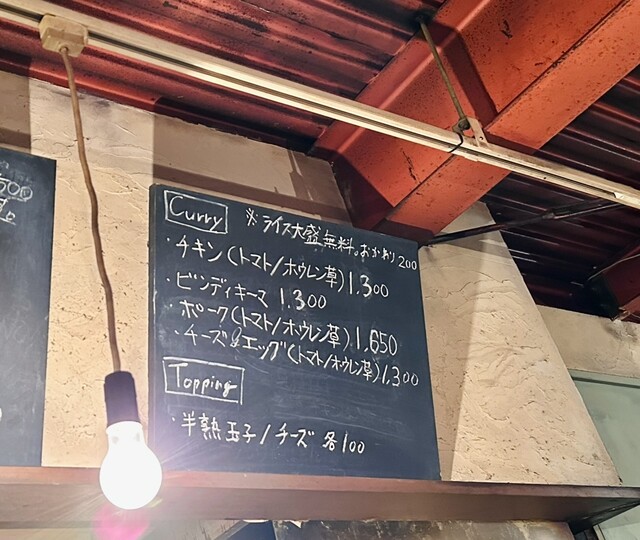 500
Curry ※ライス大盛無料。おかわり200
・チキン(トマト/ホウレン草)1,300
・ビンディキーマ 1,300
・ポーク(トマト/ホウレン草)1,650
・チーズ&エッグ(トマト/ホウレン草)1,300
Topping
・半熟玉子/チーズ 各100